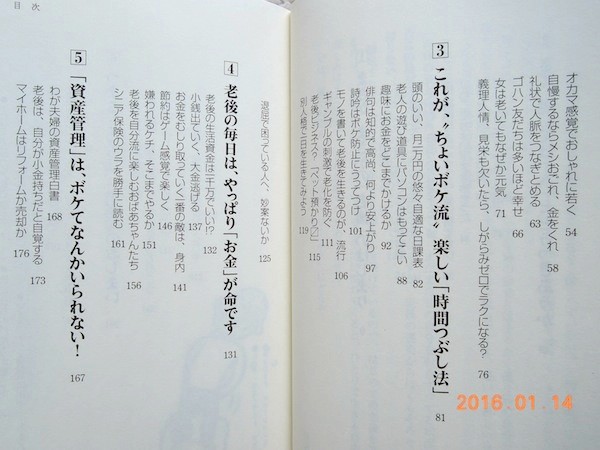 オカマ感覚でおしゃれに若く 54
自慢するならメシおごれ、金をくれ 58
礼状で人脈をつなぎとめる 63
ゴハン友だちは多いほど幸せ 66
女は老いてもなぜか元気 71
義理人情、見栄も欠いたら、しがらみゼロでラクになる? 76
3 これが、〝ちょいボケ流〟楽しい「時間つぶし法」 81
頭のいい、月一万円の悠々自適な日課表 82
老人の遊び道具にパソコンはもってこい 88
趣味にお金をどこまでかけるか 92
俳句は知的で高尚、何より安上がり 97
詩吟はボケ防止にうってつけ 101
モノを書いて老後を生きるのが、流行 106
ギャンブルの刺激で老化を防ぐ 111
老後ビジネス?「ペット預かり〼」 115
別人格で一日を生きてみよう 119
目次
退屈で困っている人へ、妙案ないか 125
4 老後の毎日は、やっぱり「お金」が命です 131
老後の生活資金は一千万でいい!? 132
小銭出ていく、大金逃げる 137
お金をむしり取っていく一番の敵は、身内 141
節約はゲーム感覚で楽しく 146
嫌われるケチ、そこまでやるか 151
老後を自分流に楽しむおばあちゃんたち 156
シニア保険のウラを勝手に読む 161
5 「資産管理」は、ボケてなんかいられない! 167
わが夫婦の資産管理白書 168
老後は、自分が小金持ちだと自覚する 173
マイホームはリフォームか売却か 176
2016.01.14